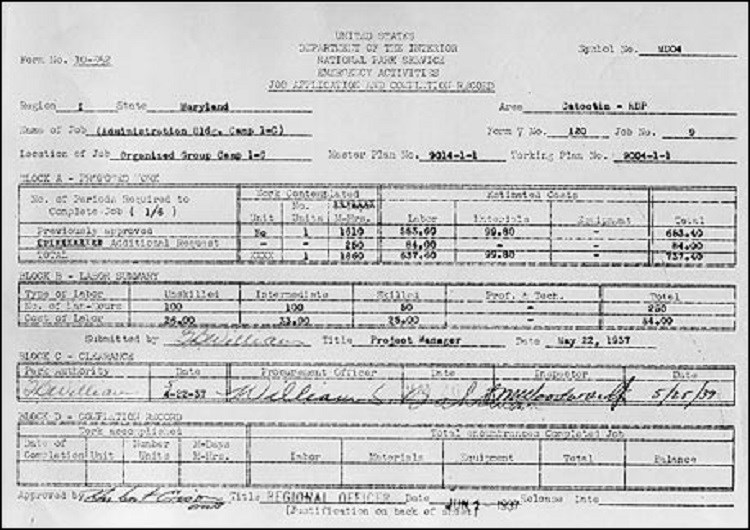 UNITED STATES
DEPARTMENT OF THE INTERIOR
Form No. 10-242 NATIONAL PARK SERVICE Symbol No. MD04
EMERGENCY ACTIVITIES
JOB APPLICATION AND COMPLETION RECORD
Region I State Maryland Area Catoctin - RDP
Name of Job (Administration Bldg. Camp 1-C) Form 7 No. 120 Job No. 9
Location of Job Organized Group Camp 1-C Master Plan No. 9014-1-1 Working Plan No. 9004-1-1
BLOCK A - PROPOSED WORK
No. of Periods Required to Complete Job ( 1/6 ) Work Contemplated Estimated Costs
Unit No. Units M-Hrs. Labor Materials Equipment Total
Previously approved No 1 1610 99.80 -
Additional Request - - 250 84.00 - - 84.00
TOTAL XXXX 1 1860 637.60 99.80 - 737.40
BLOCK B - LABOR SUMMARY
Type of Labor Unskilled Intermediate Skilled Prof. & Tech. Total
No. of Man-Hours 100 100 50 - 250
Cost of Labor 33.00 - 84.00
Submitted by Title Project Manager Date May 22, 1937
BLOCK C - CLEARANCE
Park Authority Date Procurement Officer Date Inspector Date
-22-37 William 5/25/37
BLOCK D - COMPLETION RECORD
Work accomplished Total encumbrances Completed Job
Date of Completion Unit Number Units M-Days M-Hrs. Labor Materials Equipment Total Balance
Approved by Title REGIONAL OFFICER Date JUN 1937 Release Date
(Justification on back of sheet)